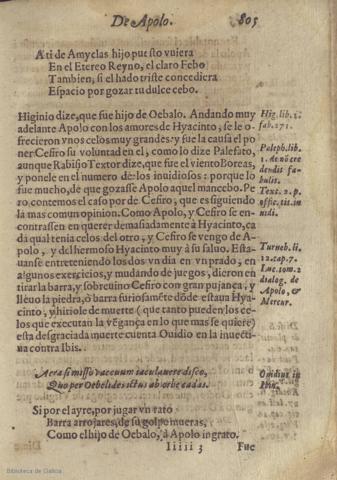 De Apolo. 805
A ti de Amyclas hijo puesto vuiera
En el Etereo Reyno, el claro Febo
Tambien, si el hado triste concediera
Espacio por gozar tu dulce cebo.
Higinio dize, que fue hijo de Oebalo. Andando muy
adelante Apolo con los amores de Hyacinto, se le o-
frecieron vnos celos muy grandes: y fue la causa el po
ner Cefiro su voluntad en el, como lo dize Palefato,
aunque Rabisio Textor dize, que fue el viento Boreas,
y ponele en el numero de los inuidiosos: porque lo
fue mucho, de que gozasse Apolo aquel mancebo. Pe
ro contemos el caso por de Cefiro, que es siguiendo
la mas comun opinion. Como Apolo, y Cefiro se en-
contrassen en querer demasiadamente à Hyacinto, ca
da qual tenia celos del otro, y Cefiro se vengo de A-
polo, y del hermoso Hyacinto muy à su saluo. Esta-
uanse entreteniendo los dos vn dia en vn prado, en
algunos exercicios, y mudando de juegos, dieron en
tirar la barra, y sobreuino Cefiro con gran pujança, y
lleuo la piedra, ò barra furiosamẽte dõde estaua Hya-
cinto, y hiriole de muerte (que tanto pueden los ce-
los que executan la vẽgança en lo que mas se quiere)
esta desgraciada muerte cuenta Ouidio en la inuecti-
ua contra Ibis.
Hig. lib. 2.
fab. 271.
Paleph. lib.
1. de nõ cre
dendis fa-
bulis.
Text. 2. p.
offic. tit. in
uidi.
Turneb. li,
12. cap. 7.
Luc. tom. 2
dialog. de
Apolo, &
Mercur.
Aera si misso vacuum iaculauere disco,
Quo puer Oebelides ictus ab orbe cadas.
Ouidius in
Ibin.
Si por el ayre, por jugar vn rato
Barra arrojares, de su golpe mueras,
Como el hijo de Oebalo, à Apolo ingrato.
Iiiii 3 Fue
Biblioteca de Galicia